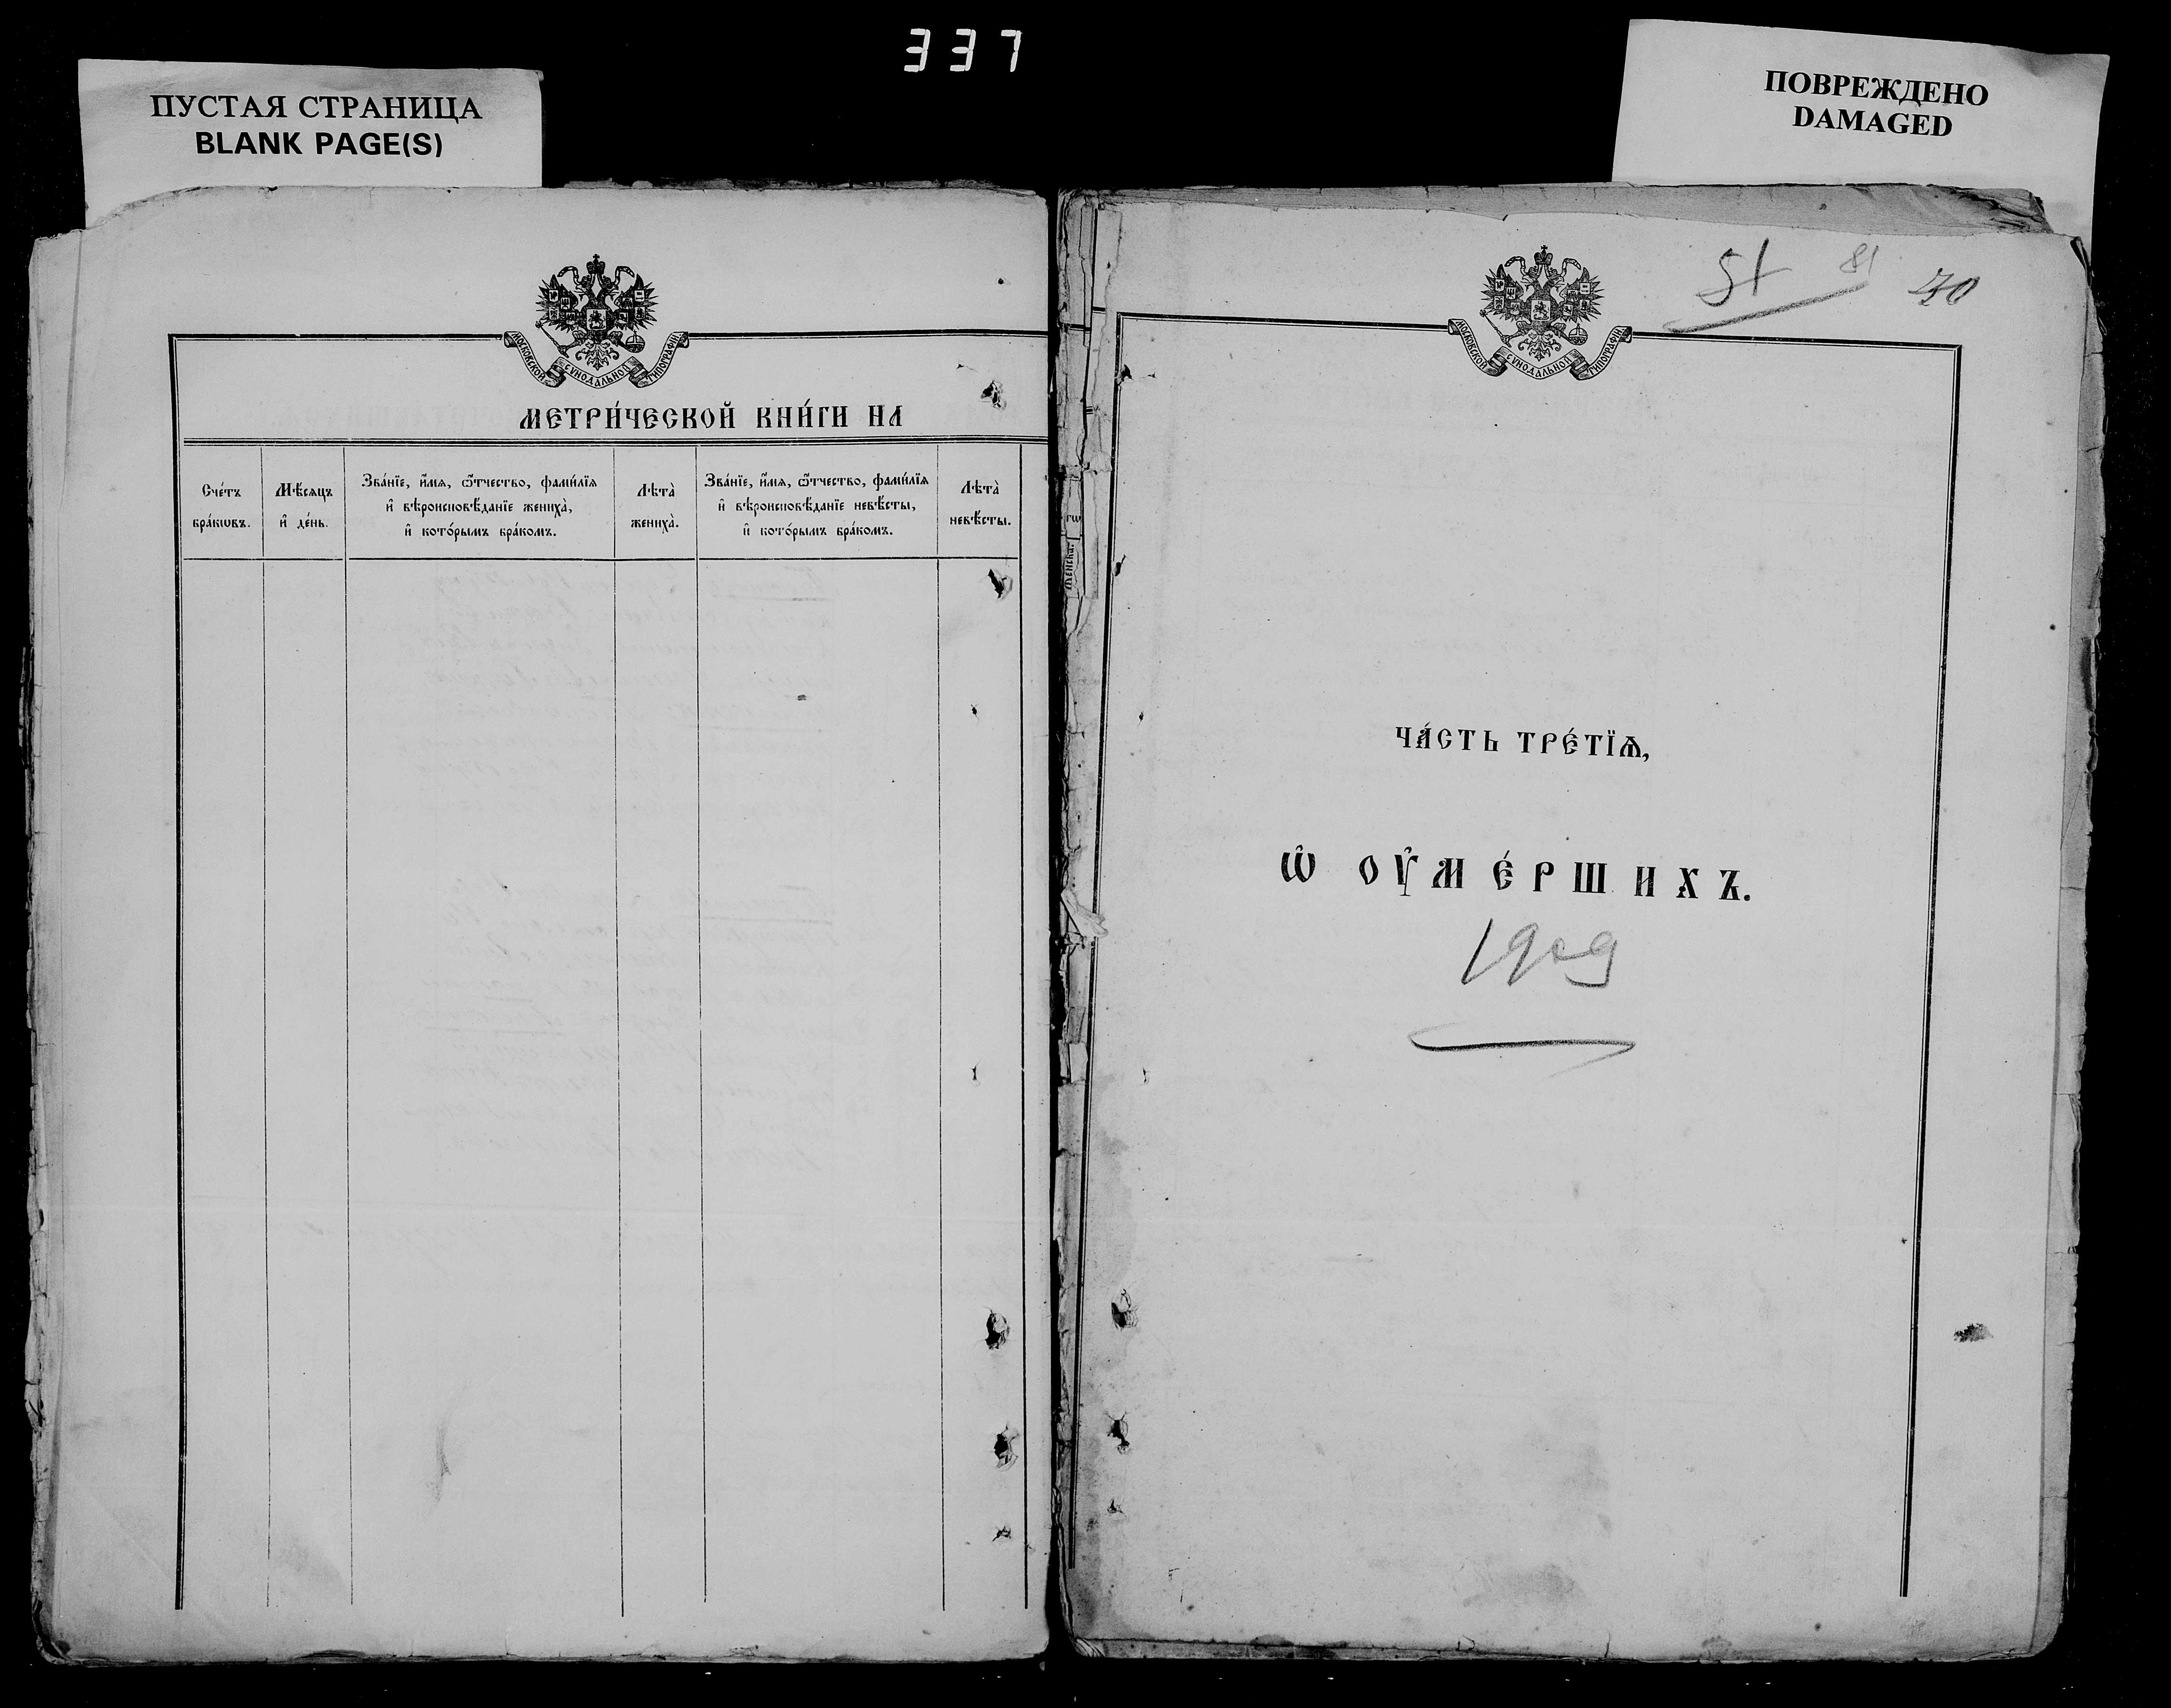 337
ПУСТАЯ СТРАНИЦА
BLANK PAGE(S)
ПОВРЕЖДЕНО
DAMAGED
МОСКОВСКОЙ СѴНОДАЛЬНОЙ ТИПОГРАФІИ
МЕТРИ́ЧЕСКОЙ КНИ́ГИ НА
Сче́тъ бра́кѡвъ.
Мѣ́сяцъ и҆ де́нь.
Зва́нїе, и҆́мѧ, ѻ҆́тчество, фами́лїѧ
и҆ вѣроисповѣ́данїе жениха̀,
и҆ кото́рымъ бра́комъ.
Лѣта̀ жениха̀.
Зва́нїе, и҆́мѧ, ѻ҆́тчество, фами́лїѧ
и҆ вѣроисповѣ́данїе невѣ́сты,
и҆ кото́рымъ бра́комъ.
Лѣта̀ невѣ́сты.
51 81 40
МОСКОВСКОЙ СѴНОДАЛЬНОЙ ТИПОГРАФІИ
ЧА́СТЬ ТРЕ́ТЇѦ,
Ѡ҆ ОУ҆МЕ́РШИХЪ.
1909